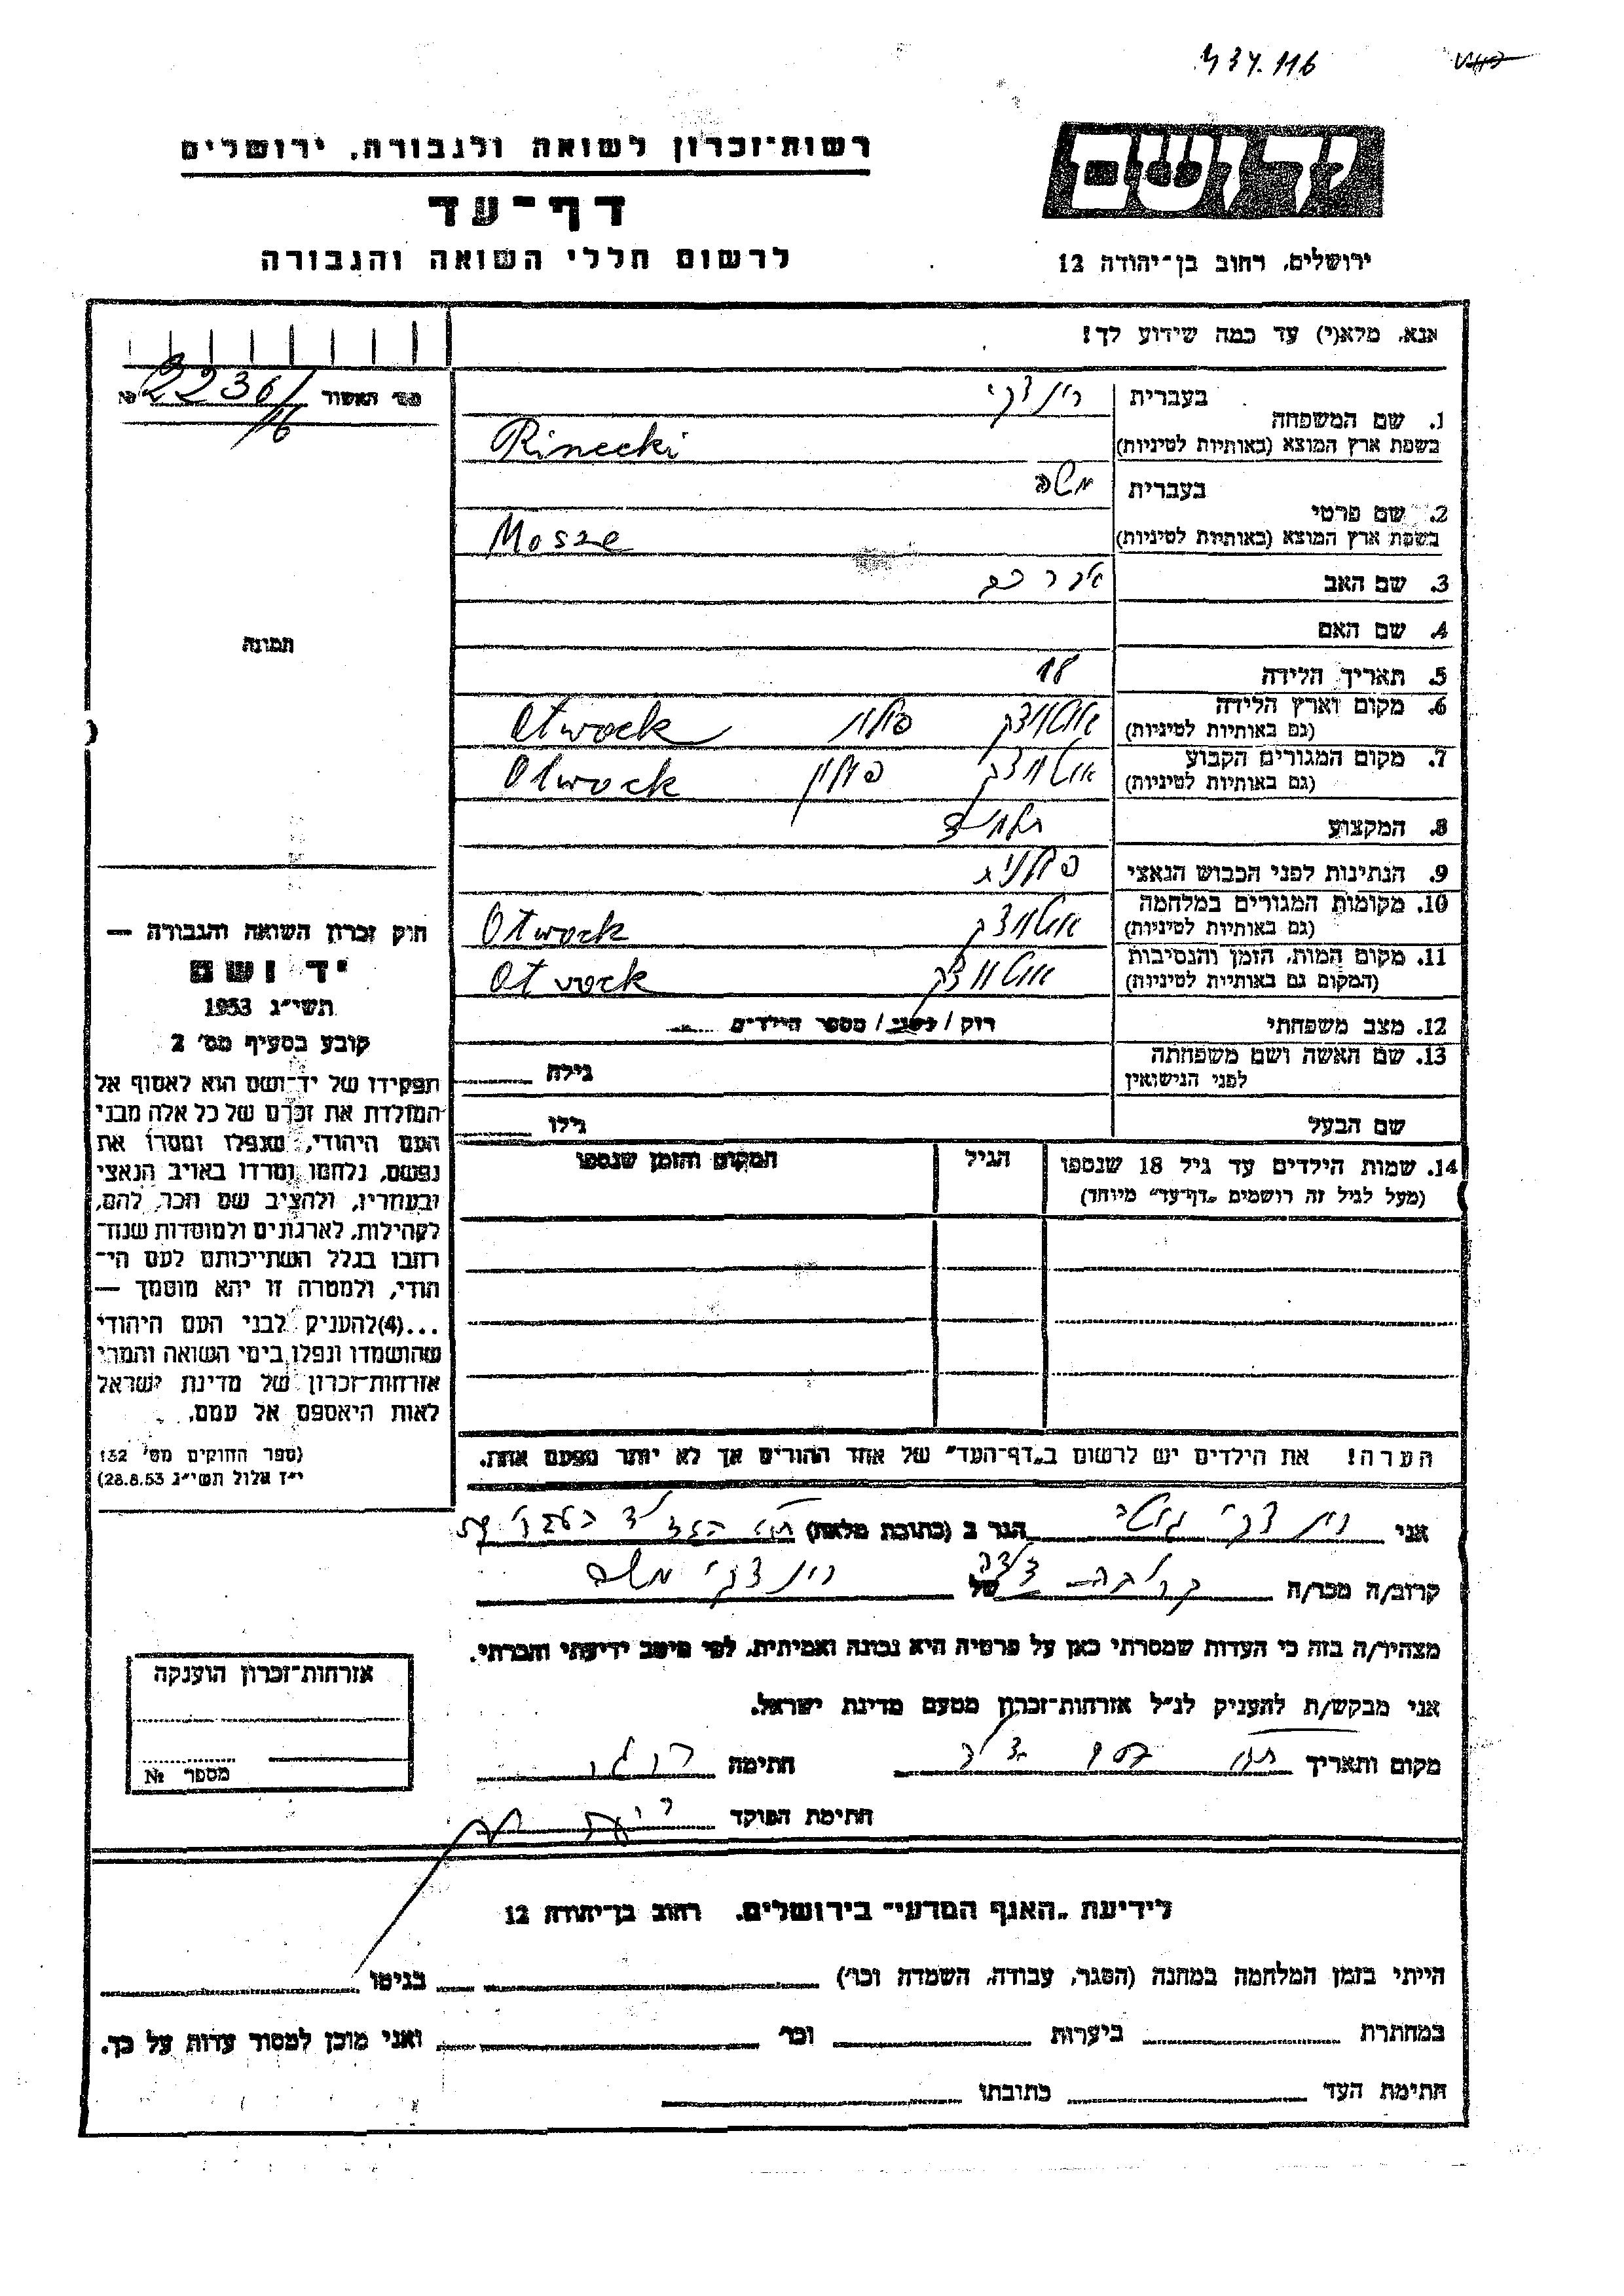 434.116
רשות־זכרון לשואה ולגבורה, ירושלים
יד ושם
דף־עד
לרשום חללי השואה והגבורה
ירושלים, רחוב בן־יהודה 12
אנא, מלא(י) עד כמה שידוע לך!
מס׳ האשור 2236/16 №
1. שם המשפחה בעברית רינצקי
בשפת ארץ המוצא (באותיות לטיניות) Rinecki
2. שם פרטי בעברית משה
בשפת ארץ המוצא (באותיות לטיניות) Mosze
3. שם האב אברהם
4. שם האם
תמונה
5. תאריך הלידה 18
6. מקום וארץ הלידה (גם באותיות לטיניות) אוטווצק פולין Otwock
7. מקום המגורים הקבוע (גם באותיות לטיניות) אוטווצק פולין Otwock
8. המקצוע
9. הנתינות לפני הכבוש הנאצי פולנית
10. מקומות המגורים במלחמה (גם באותיות לטיניות) אוטווצק Otwock
11. מקום המות, הזמן והנסיבות (המקום גם באותיות לטיניות) אוטווצק Otwock
12. מצב משפחתי רווק / נשוי / מספר הילדים
13. שם האשה ושם משפחתה לפני הנישואין גילה
שם הבעל גילו
14. שמות הילדים עד גיל 18 שנספו הגיל המקום והזמן שנספו
(מעל לגיל זה רושמים „דף־עד” מיוחד)
הערה! את הילדים יש לרשום ב„דף־העד” של אחד ההורים אך לא יותר מפעם אחת.
חוק זכרון השואה והגבורה —
יד ושם
תשי״ג 1953
קובע בסעיף מס׳ 2
תפקידו של יד־ושם הוא לאסוף אל
המולדת את זכרם של כל אלה מבני
העם היהודי, שנפלו ומסרו את
נפשם, נלחמו ומרדו באויב הנאצי
ובעוזריו, ולהציב שם וזכר להם,
לקהילות, לארגונים ולמוסדות שנח־
רבו בגלל השתייכותם לעם הי־
הודי, ולמטרה זו יהא מוסמך —
...(4) להעניק לבני העם היהודי
שהושמדו ונפלו בימי השואה והמרי
אזרחות־זכרון של מדינת ישראל
לאות היאספם אל עמם.
(ספר החוקים מס׳ 132
י״ז אלול תשי״ג 28.8.53)
אני רינצקי הגר ב (כתובת מלאה)
קרוב/ה מכר/ה של רינצקי משה
מצהיר/ה בזה כי העדות שמסרתי כאן על פרטיה היא נכונה ואמיתית, לפי מיטב ידיעתי והכרתי.
אני מבקש/ת להעניק לנ״ל אזרחות־זכרון מטעם מדינת ישראל.
מקום ותאריך חתימה
חתימת הפוקד
אזרחות־זכרון הוענקה
מספר №
לידיעת „האגף המדעי” בירושלים, רחוב בן־יהודה 12
הייתי בזמן המלחמה במחנה (הסגר, עבודה, השמדה וכו׳) בגיטו
במחתרת ביערות וכו׳ ואני מוכן למסור עדות על כך.
חתימת העד כתובתו